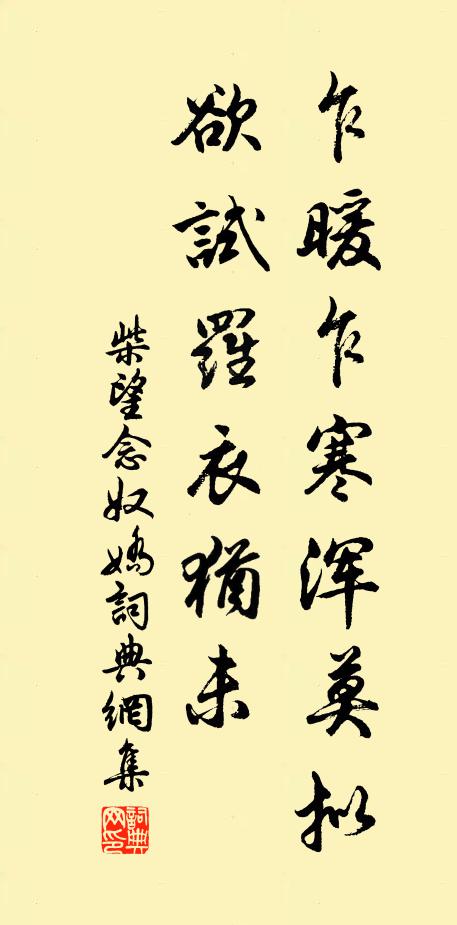 乍暖乍寒浑莫拟
欲試羅衣猶未
柴望念奴嬌詞典網集
詞典网印